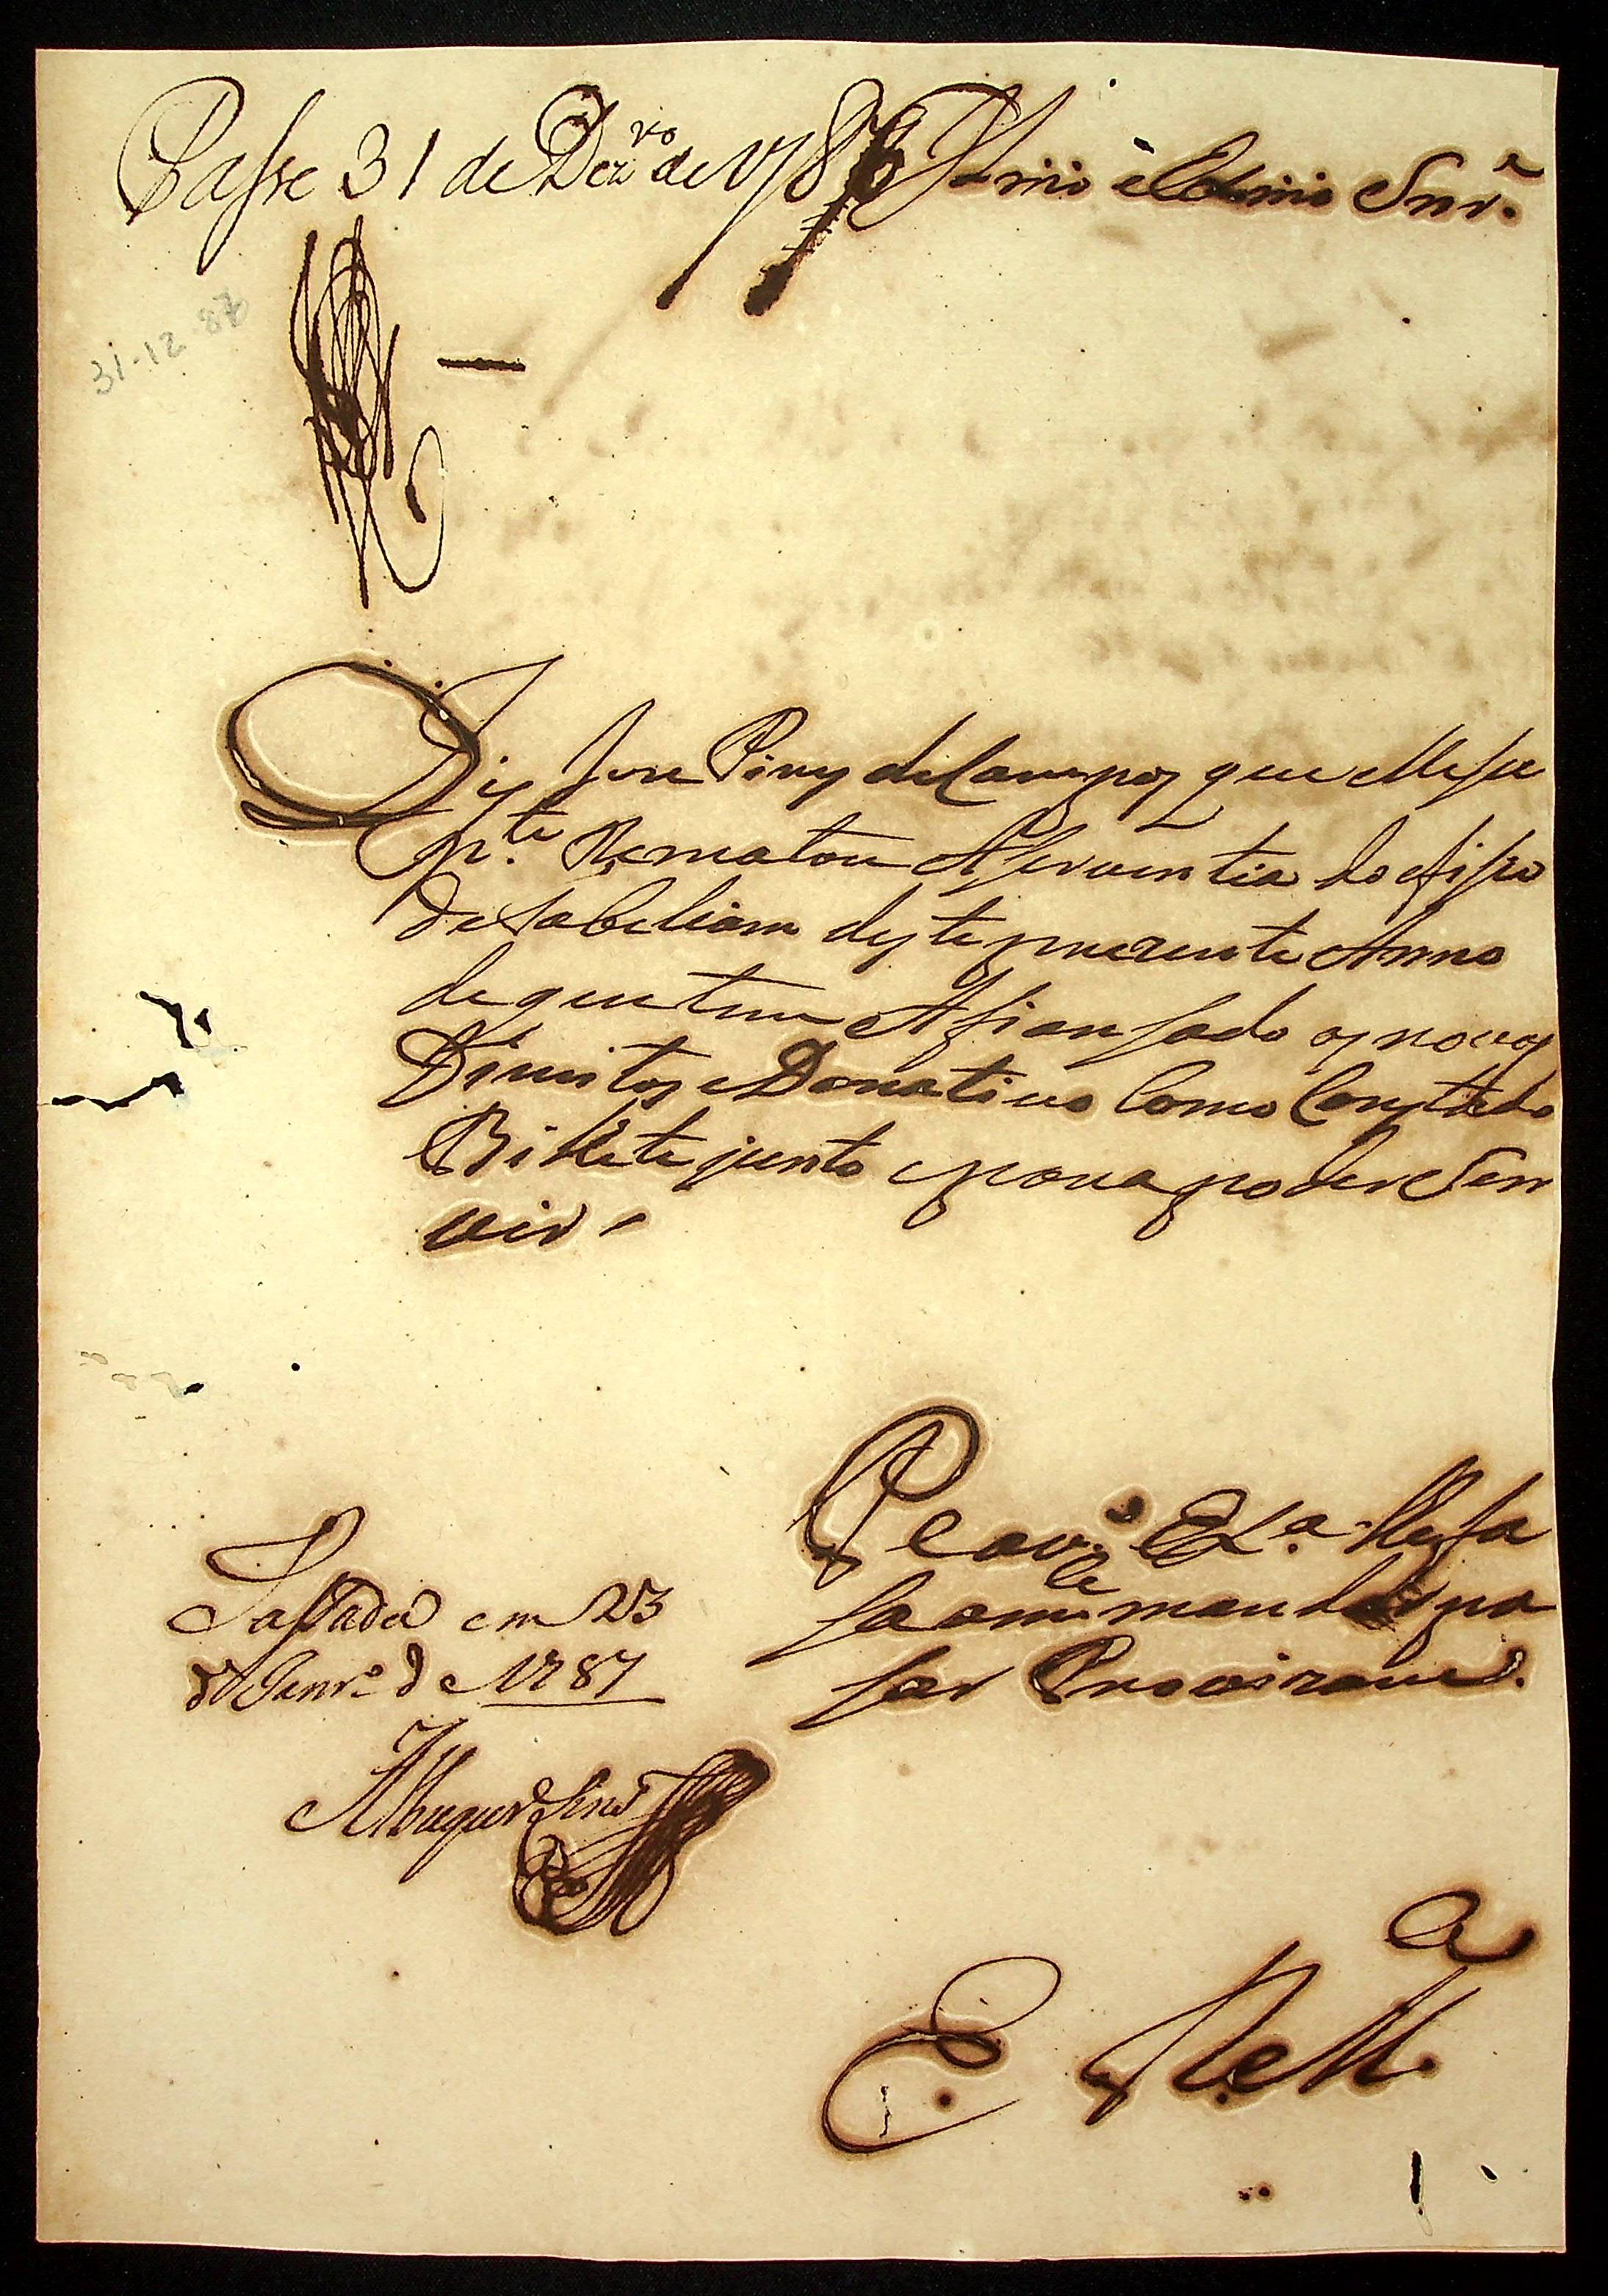 Passe 31 de Dezro de 1786
Illmo e Exmo Snr.
31-12-87
Diz Jose Pires de Campos que elle su
pte. Rematou A servuentia do ofisio
de Tabeliam deste prezente Anno
de que tem Afiansado os novos
Direitos e Donativo Como Consta do
Bilhete junto e para poder Ser
vir
P e a V. Exa. lhe fa
sa mandar pa
sar Provizam.
Passada em 23
de Janro. de 1787
Albuquerque
E. R. M.